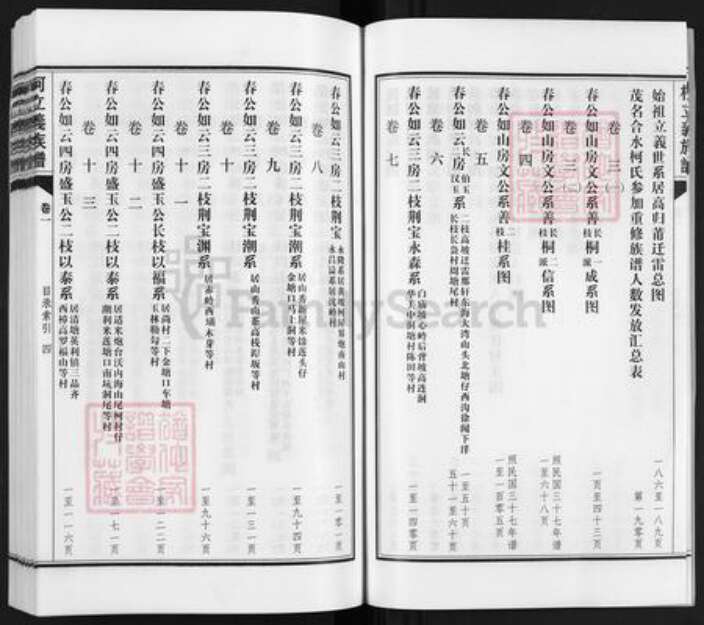 始祖立義世系居高归莆迁雷总图 一八六至一八九页
茂名合水柯氏参加重修族谱人数发放汇总表 第一九零页
卷三(一)
春公如山房文公系善桐一成系图 长枝 派 一页至四十三页
卷三(二)
春公如山房文公系善桐二信系图 长枝 派 照民国三十七年谱 一至六十八页
卷四
春公如山房文公系善桂系图 二枝 照民国三十七年谱 一至一百零五页
卷五
春公如云二房长伯玉系 二枝高坡迁雷那轩东海大湾山头北塘仔西沟徐闻下洋 一至五十页
次汉玉 长枝长袅村周塘尾村 五十一至六十页
卷六
春公如云三房二枝荆宝永森系 白庙坡心岭后背坡高连洞 华美中洞塘村陈田等村 一至一四零页
卷七
春公如云三房二枝荆宝 永隆系居黄坡柯屋寨炮南山村 永昌益系居沈岭村 一至一零一页
卷八
春公如云三房二枝荆宝潮系 居山秀新屋米馀莲头仔 金塘口马上洞等村 一至九十四页
卷九
春公如云三房二枝荆宝潮系 居山秀山寨高枝距坂等村 一至一三一页
卷十
春公如云三房二枝荆宝渊系 居赤岭西埇永芽等村 一至九十六页
卷十一
春公如云四房盛玉公长枝以福系 居尚村二下金塘口车塘 玉林勒勾等村 一至一二二页
卷十二
春公如云四房盛玉公二枝以泰系 居适米炮台沃内海山尾柯村仔 潮利米莲塘口南坑洞尾等村 一至一七一页
卷十三
春公如云四房盛玉公二枝以泰系 居清塘英利镇三品齐 西樟高罗福山等村 一至一一六页
柯立義族譜
卷一
目录索引 四
FamilySearch